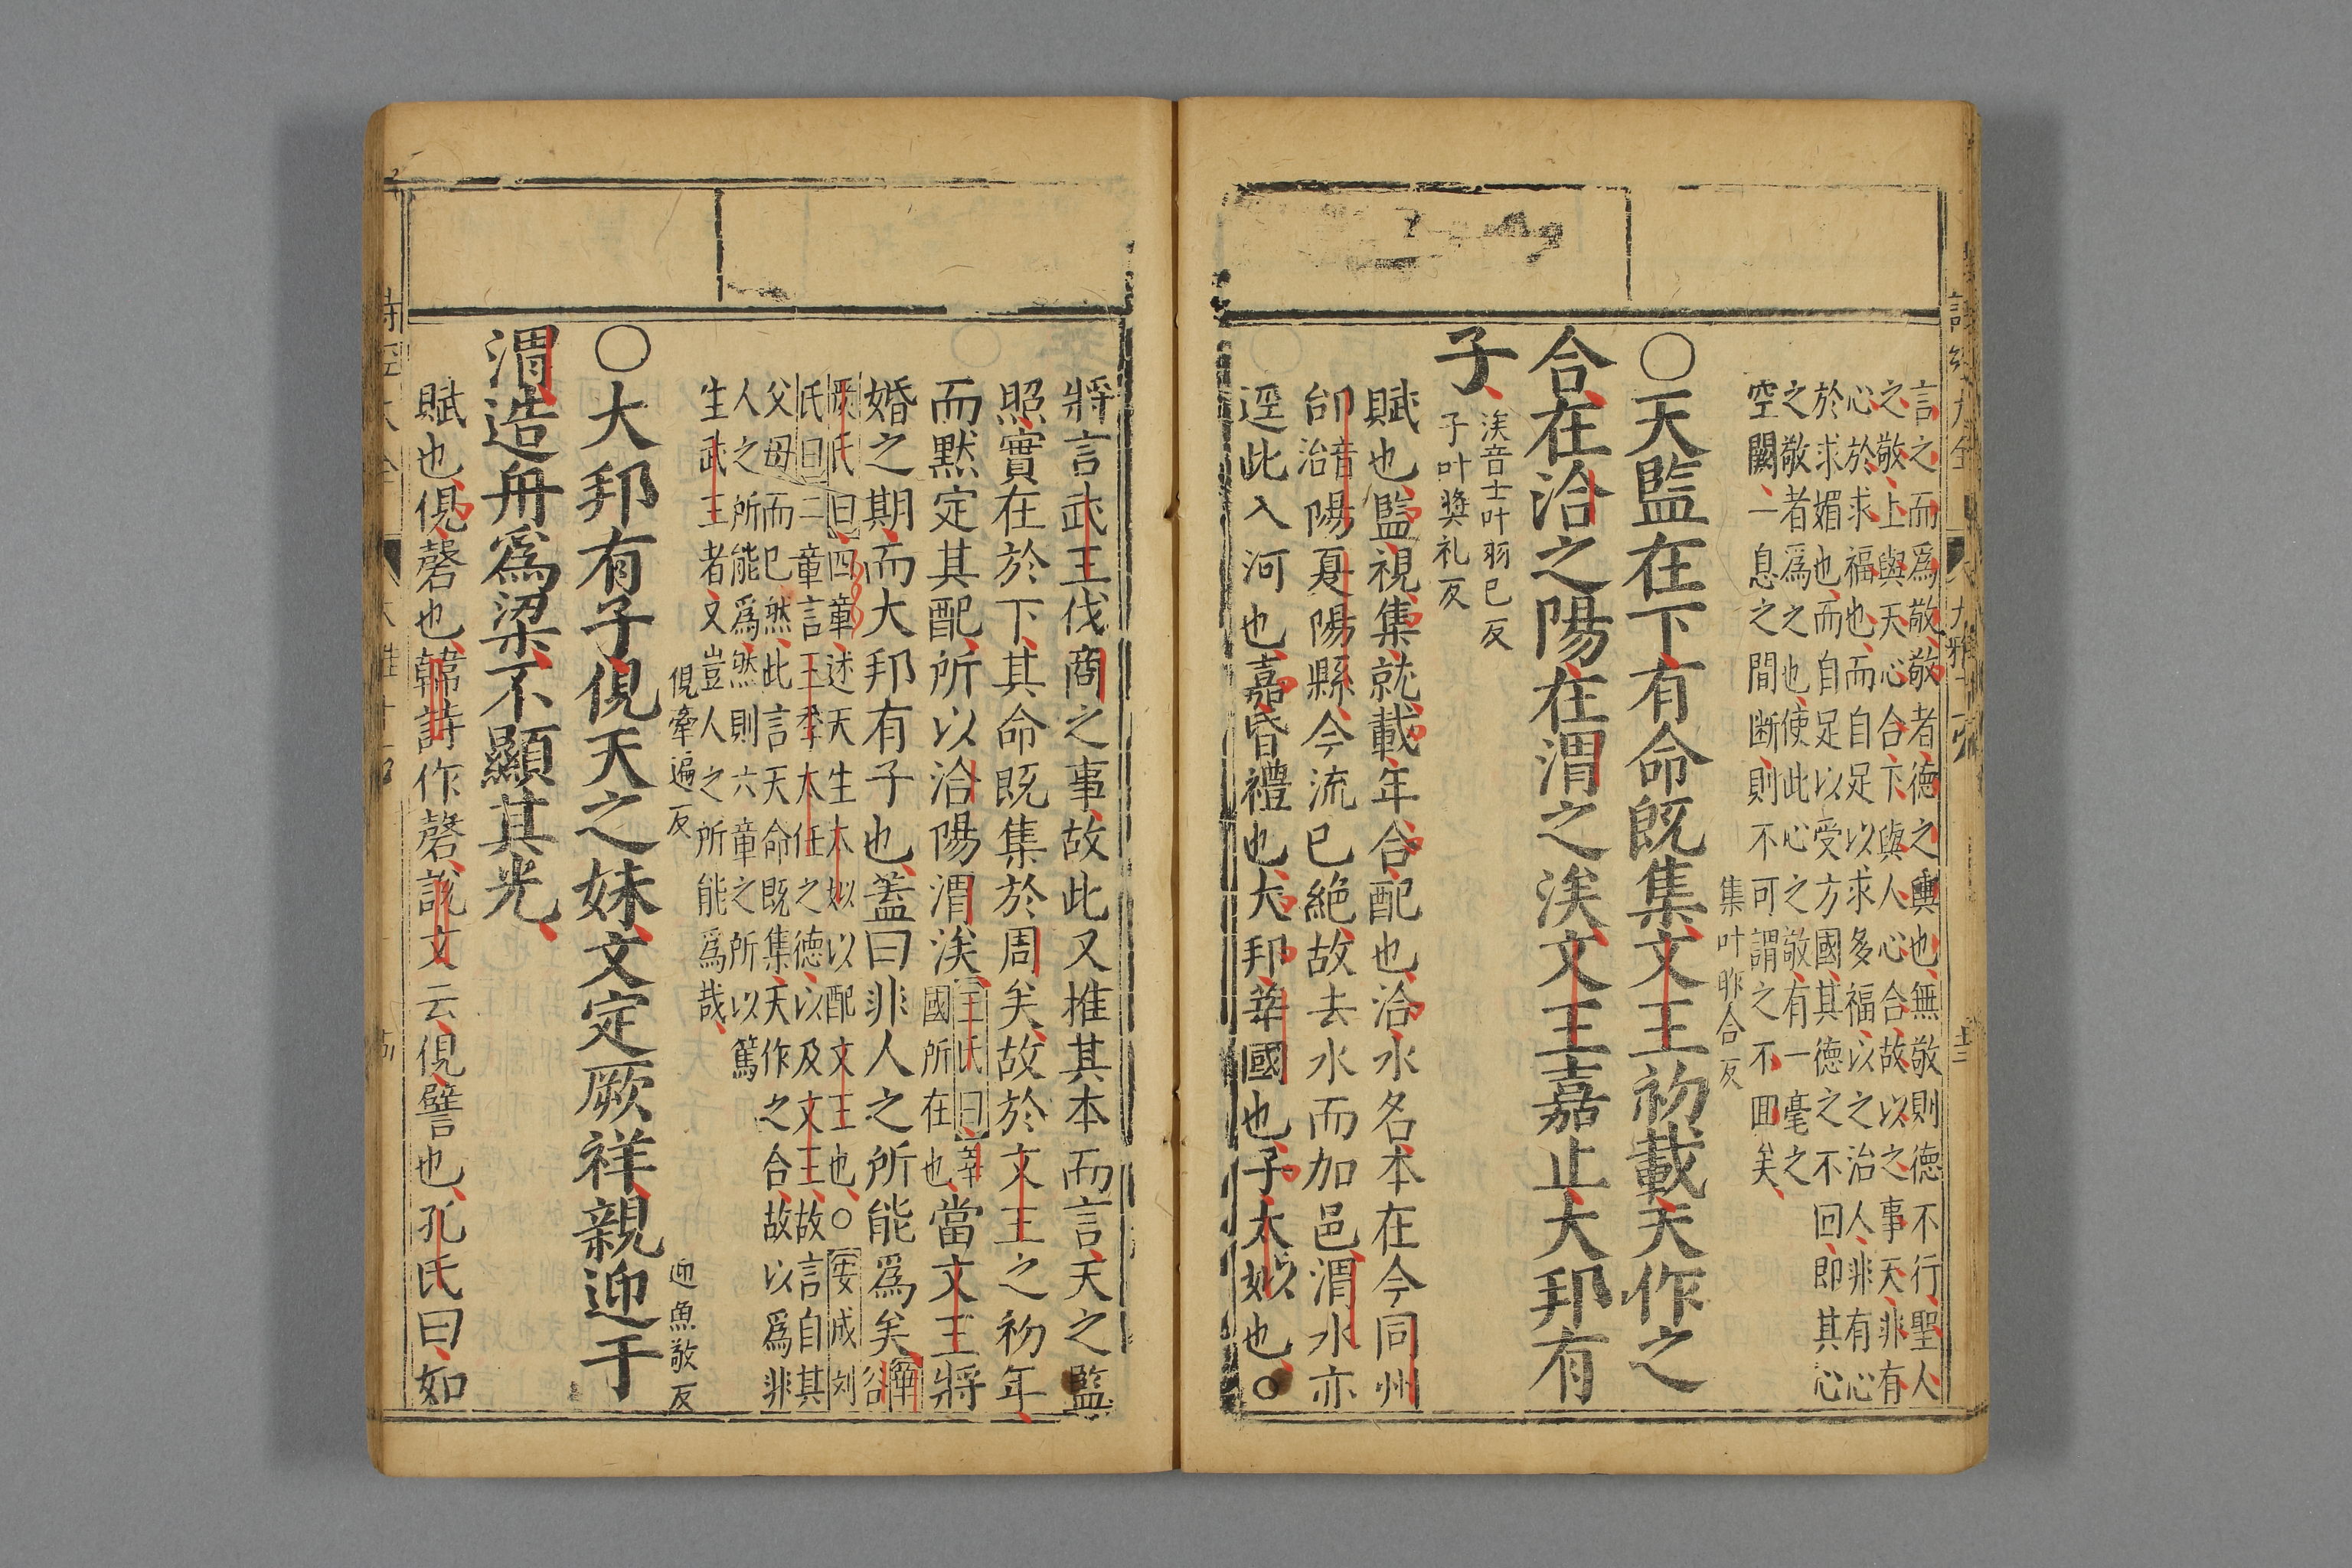 言之而爲敬敬者德之輿也無敬則德不行聖人
之敬上與天心合下與人心合故以之事天非有
心於求福也而自足以求多福以之治人非有心
於求媚也而自足以受方國其德之不回即其心
之敬者爲之也使此心之敬有一毫之
空闕一息之間断則不可謂之不囬矣
○天監在下有命既集集叶昨合反文王初載天作之
合在洽之陽在渭之涘文王嘉止大邦有
子涘音士叶羽已反
子叶奬礼反
賦也監視集就載年合配也洽水名本在今同州
郃音治陽夏陽縣今流已絶故去水而加邑渭水亦
逕此入河也嘉昏禮也大邦莘國也子太姒也○
將言武王伐商之事故此又推其本而言天之監
照實在於下其命既集於周矣故於文王之初年
而默定其配所以洽陽渭涘王氏曰莘國所在也當文王將
婚之期而大邦有子也蓋曰非人之所能爲矣
嚴氏曰四章述天生太姒以配文王也○安成劉
氏曰二章言王季太任之德以及文王故言自其
父母而已然此言天命既集天作之合故以爲非
人之所能爲然則六章之所以篤
生武王者又豈人之所能爲哉
○大邦有子俔俔牽遍反天之妹文定厥祥親迎迎魚敬反于
渭造舟爲梁不顯其光
賦也俔磬也韓詩作磬說文云俔譬也孔氏曰如